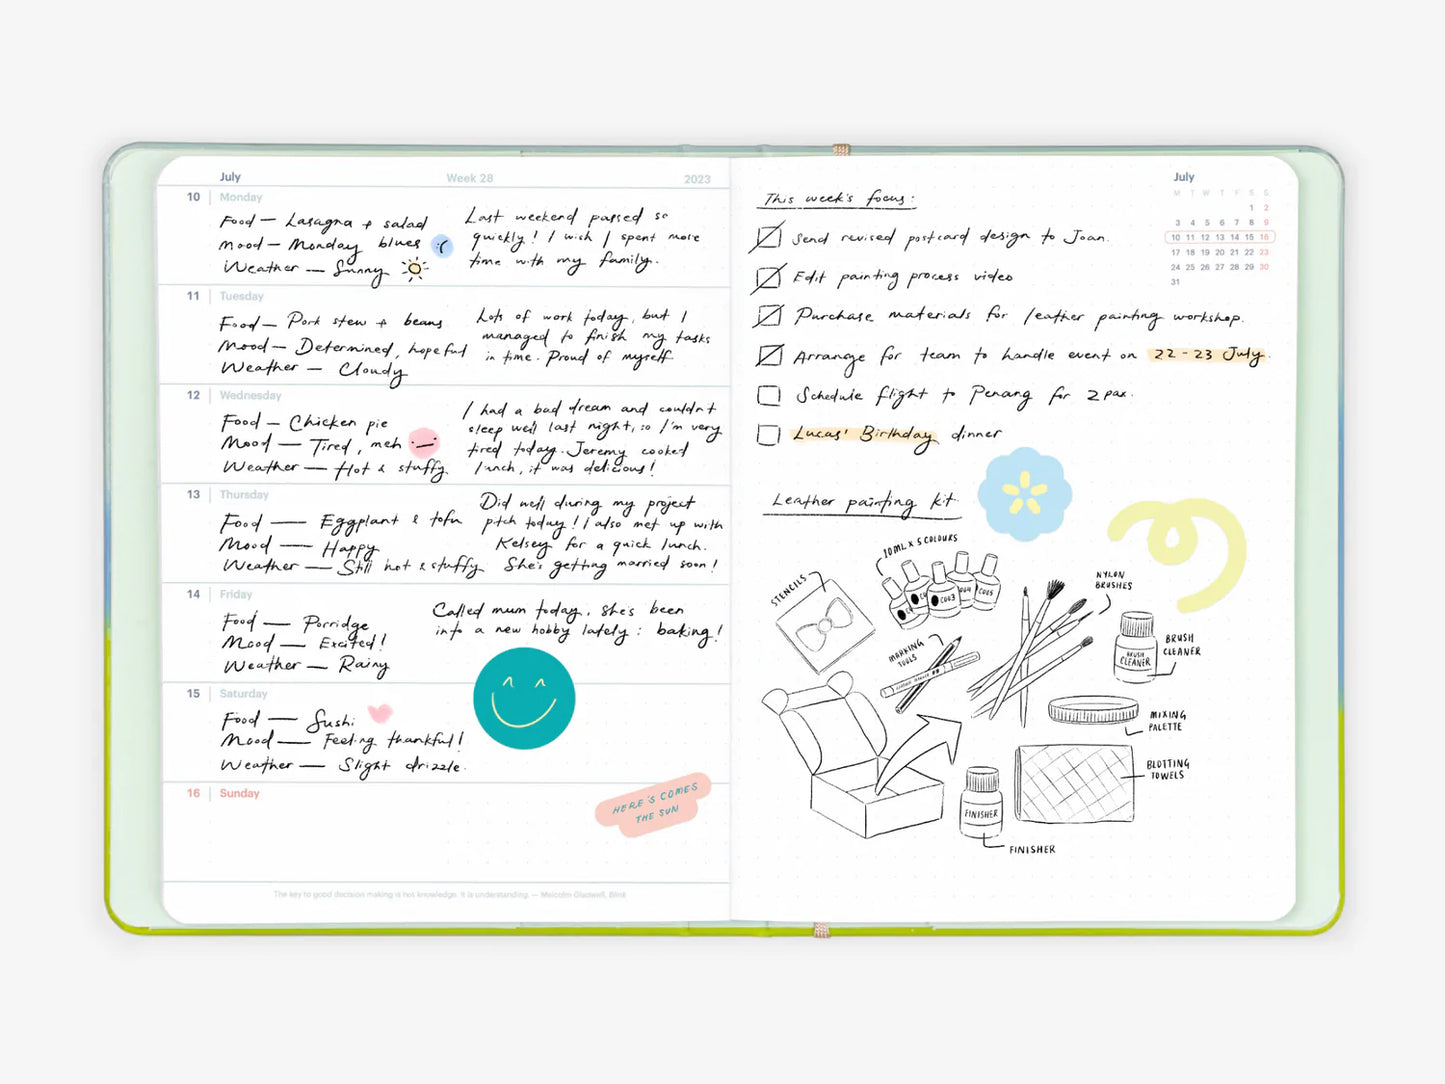 July Week 28 2023
10 Monday
Food — Lasagna + salad
Mood — Monday blues :(
Weather — Sunny
Last weekend passed so
quickly! I wish I spent more
time with my family.
11 Tuesday
Food — Pork stew + beans
Mood — Determined, hopeful
Weather — Cloudy
Lots of work today, but I
managed to finish my tasks
in time. Proud of myself
12 Wednesday
Food — Chicken pie
Mood — Tired, meh
Weather — Hot & stuffy
I had a bad dream and couldn't
sleep well last night, so I'm very
tired today. Jeremy cooked
lunch, it was delicious!
13 Thursday
Food — Eggplant & tofu
Mood — Happy
Weather — Still hot & stuffy
Did well during my project
pitch today! I also met up with
Kelsey for a quick lunch.
She's getting married soon!
14 Friday
Food — Porridge
Mood — Excited!
Weather — Rainy
Called mum today, she's been
into a new hobby lately : baking!
15 Saturday
Food — Sushi
Mood — Feeling thankful!
Weather — Slight drizzle.
16 Sunday
HERE'S COMES
THE SUN
The key to good decision making is not knowledge. It is understanding. — Malcolm Gladwell, Blink
July
M T W T F S S
1 2
3 4 5 6 7 8 9
10 11 12 13 14 15 16
17 18 19 20 21 22 23
24 25 26 27 28 29 30
31
This week's focus:
Send revised postcard design to Joan.
Edit painting process video
Purchase materials for leather painting workshop.
Arrange for team to handle event on 22-23 July.
Schedule flight to Penang for 2 pax.
Lucas' Birthday dinner
Leather painting kit
STENCILS
10ML X 5 COLOURS
C003
C004
C005
MARKING
TOOLS
NYLON
BRUSHES
BRUSH
CLEANER
BRUSH
CLEANER
MIXING
PALETTE
BLOTTING
TOWELS
FINISHER
FINISHER